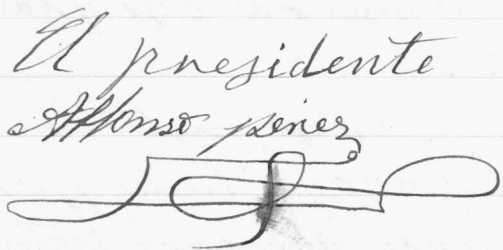 El presidente
Alfonso perez